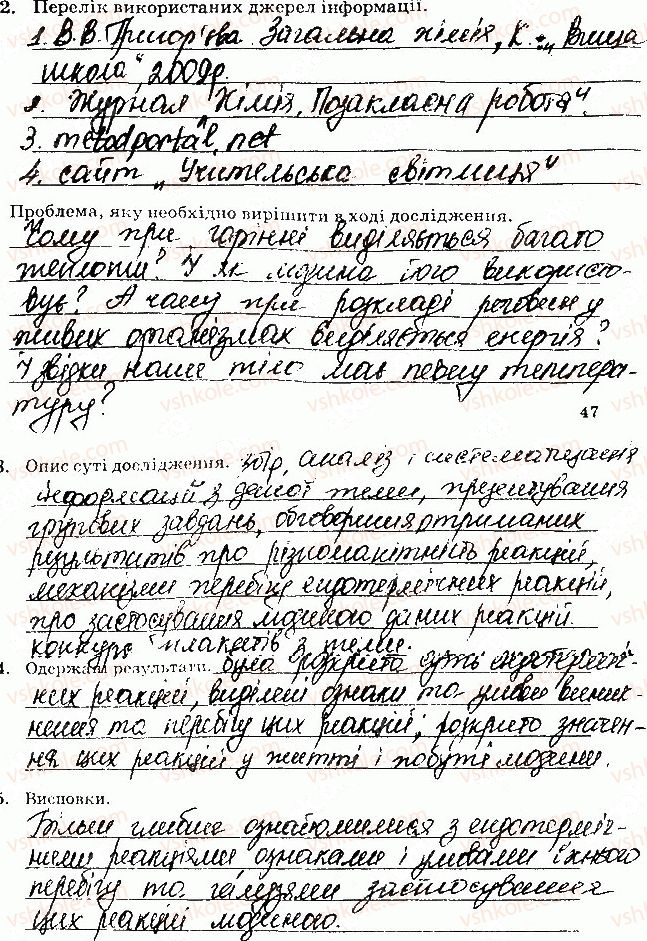 2. Перелік використаних джерел інформації.
1. В.В. Григор'єва Загальна хімія, К.: „Вища
школа", 2009р.
2. Журнал „Хімія, Позакласна робота".
3. metodportal.net
4. сайт „Учительська світлиця"
Проблема, яку необхідно вирішити в ході дослідження.
Чому при горінні виділяється багато
теплоти? І як людина його використо-
вує? А чому при розкладі речовин у
живих організмах виділяється енергія?
І звідки наше тіло має певну темпера-
туру?
47
3. Опис суті дослідження. Збір, аналіз і систематизація
інформації з даної теми, презентування
групових завдань, обговорення отриманих
результатів про різноманітність реакцій,
механізми перебігу ендотермічних реакцій,
про застосування людиною даних реакцій
конкурс плакатів з теми.
4. Одержані результати. Була розкрита суть ендотерміч-
них реакцій, виділені ознаки та умови виник-
нення та перебігу цих реакцій; розкрито значен-
ня цих реакцій у житті і побуті людини.
5. Висновки.
Більш глибше ознайомилися з ендотерміч-
ними реакціями ознаками і умовами їхнього
перебігу та галузями застосування
цих реакцій людиною.